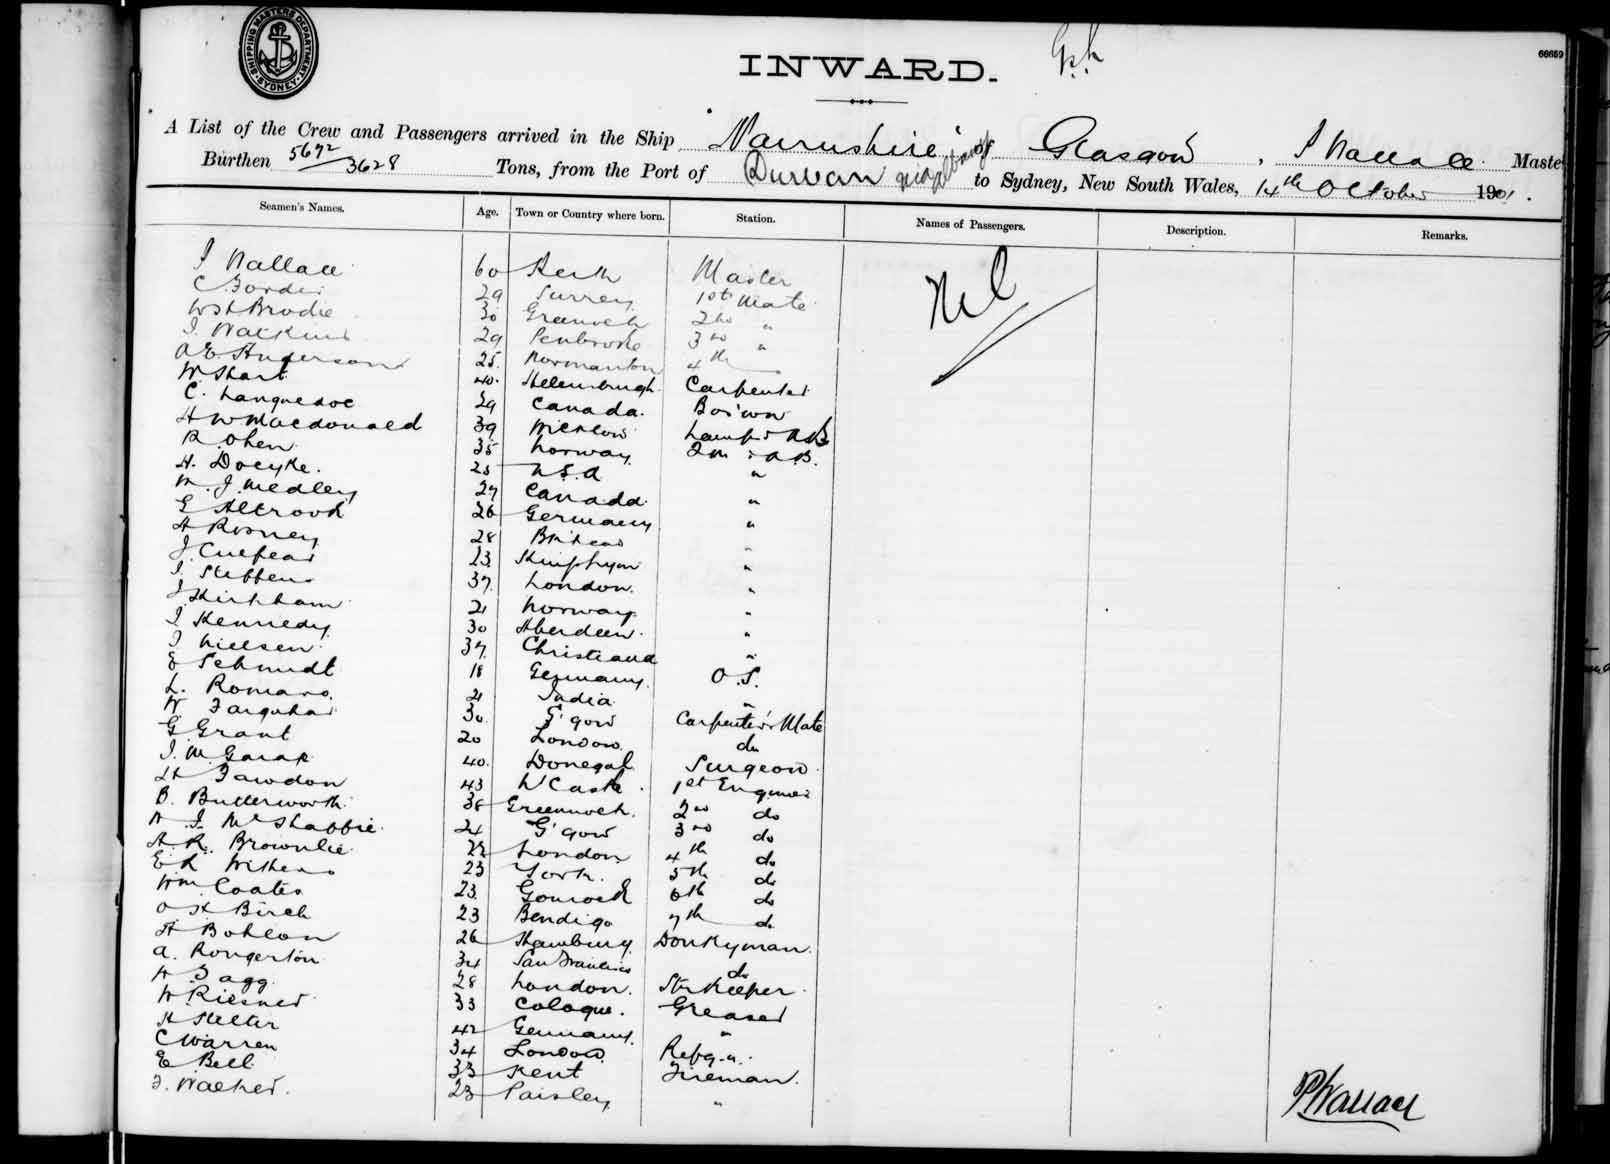 SHIPPING MASTERS DEPARTMENT SYDNEY
66659
INWARD.
A List of the Crew and Passengers arrived in the Ship Nairnshire of Glasgow, Wallace Master
Burthen 5672/3628 Tons, from the Port of Durban via Albany to Sydney, New South Wales, 14th October 1901.
Seamen's Names. Age. Town or Country where born. Station. Names of Passengers. Description. Remarks.
Wallace 60 Master Nil
29 Surrey 1st Mate
Brodie 30 Greenock 2nd "
J Watkins 29 Penbroke 3rd "
A E. Anderson 25 Normanton 4th
W Short 40 Helensburgh Carpenter
C. Languedoc 29 Canada. Bos'wn
H W Macdonald 39 Wicklow Lamps & AB
R Olsen 35 Norway 2M & A.B.
H. 25 U S. A "
M. J. Medley 27 Canada "
E 26 Germany "
H Rooney 28 "
J 23 "
J. Steffens 37 London. "
J Kirkham 21 Norway "
J Kennedy 30 Aberdeen "
J Nielsen 37 Christiana "
E Schmidt 18 Germany O.S.
L. Romano 21 India "
W Farquhar 30 G'gow Carpenter's Mate
G Grant 20 London do
J. 40 Donegal Surgeon
Fawdon 43 N'Castle 1st Engineer
B. Butterworth 38 Greennock. 2nd do
24 G'gow 3rd do
A. R. Brownlie 22 London 4th do
E R Withens 23 York. 5th do
Wm Coates 23 Gourock 6th do
O H Birch 23 Bendigo 7th do
H Bohlon 26 Hamburg Donkyman
A. Rongerton 34 San Francisco do
H Fagg 28 London. Str Keeper
W Riesner 33 Cologue. Greaser
H Stelter 42 Germany "
C Warren 34 London Refg. "
E Bell 33 Kent Fireman.
J. Walker 23 Paisley "
P Wallace